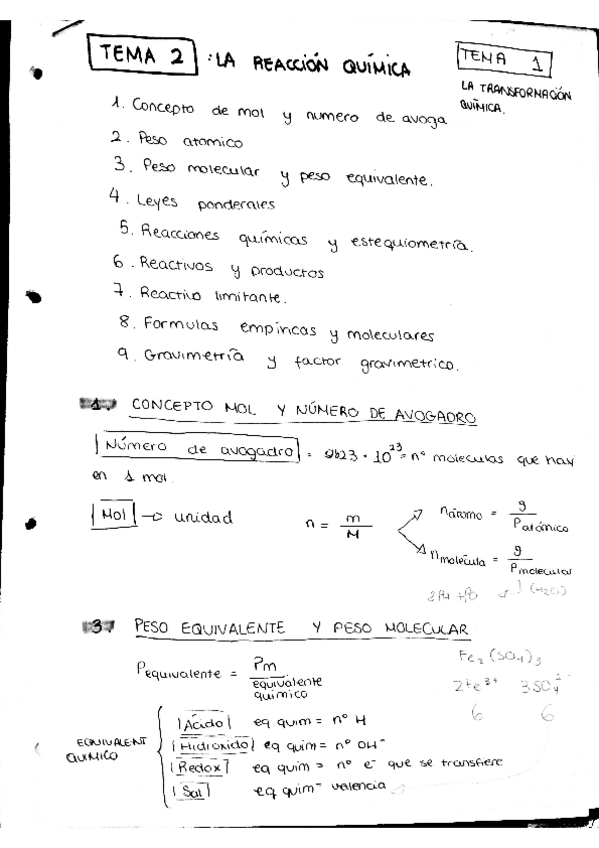 TEMA 2 : LA REACCIÓN QUÍMICA
TEMA 1
LA TRANSFORMACIÓN
QUÍMICA.
1. Concepto de mol y numero de avoga
2. Peso atomico
3. Peso molecular y peso equivalente.
4. Leyes ponderales
5. Reacciones químicas y estequiometría.
6. Reactivos y productos
7. Reactivo limitante.
8. Formulas empíricas y moleculares
9. Gravimetría y factor gravimetrico.
1. CONCEPTO MOL Y NÚMERO DE AVOGADRO
Número de avogadro = 6'023 · 10^23 = nº moleculas que hay
en 1 mol.
Mol → unidad n = m/M
nátomo = g/Patómico
nmolécula = g/Pmolecular
(H2O)
3 PESO EQUIVALENTE Y PESO MOLECULAR
Pequivalente = Pm/equivalente químico
Fe2(SO4)3
2Fe3+ 3SO4 2-
6 6
EQUIVALENT QUÍMICO
Ácido eq quim = nº H
Hidroxido eq quim = nº OH-
Redox eq quim = nº e- que se transfiere
Sal eq quim = valencia